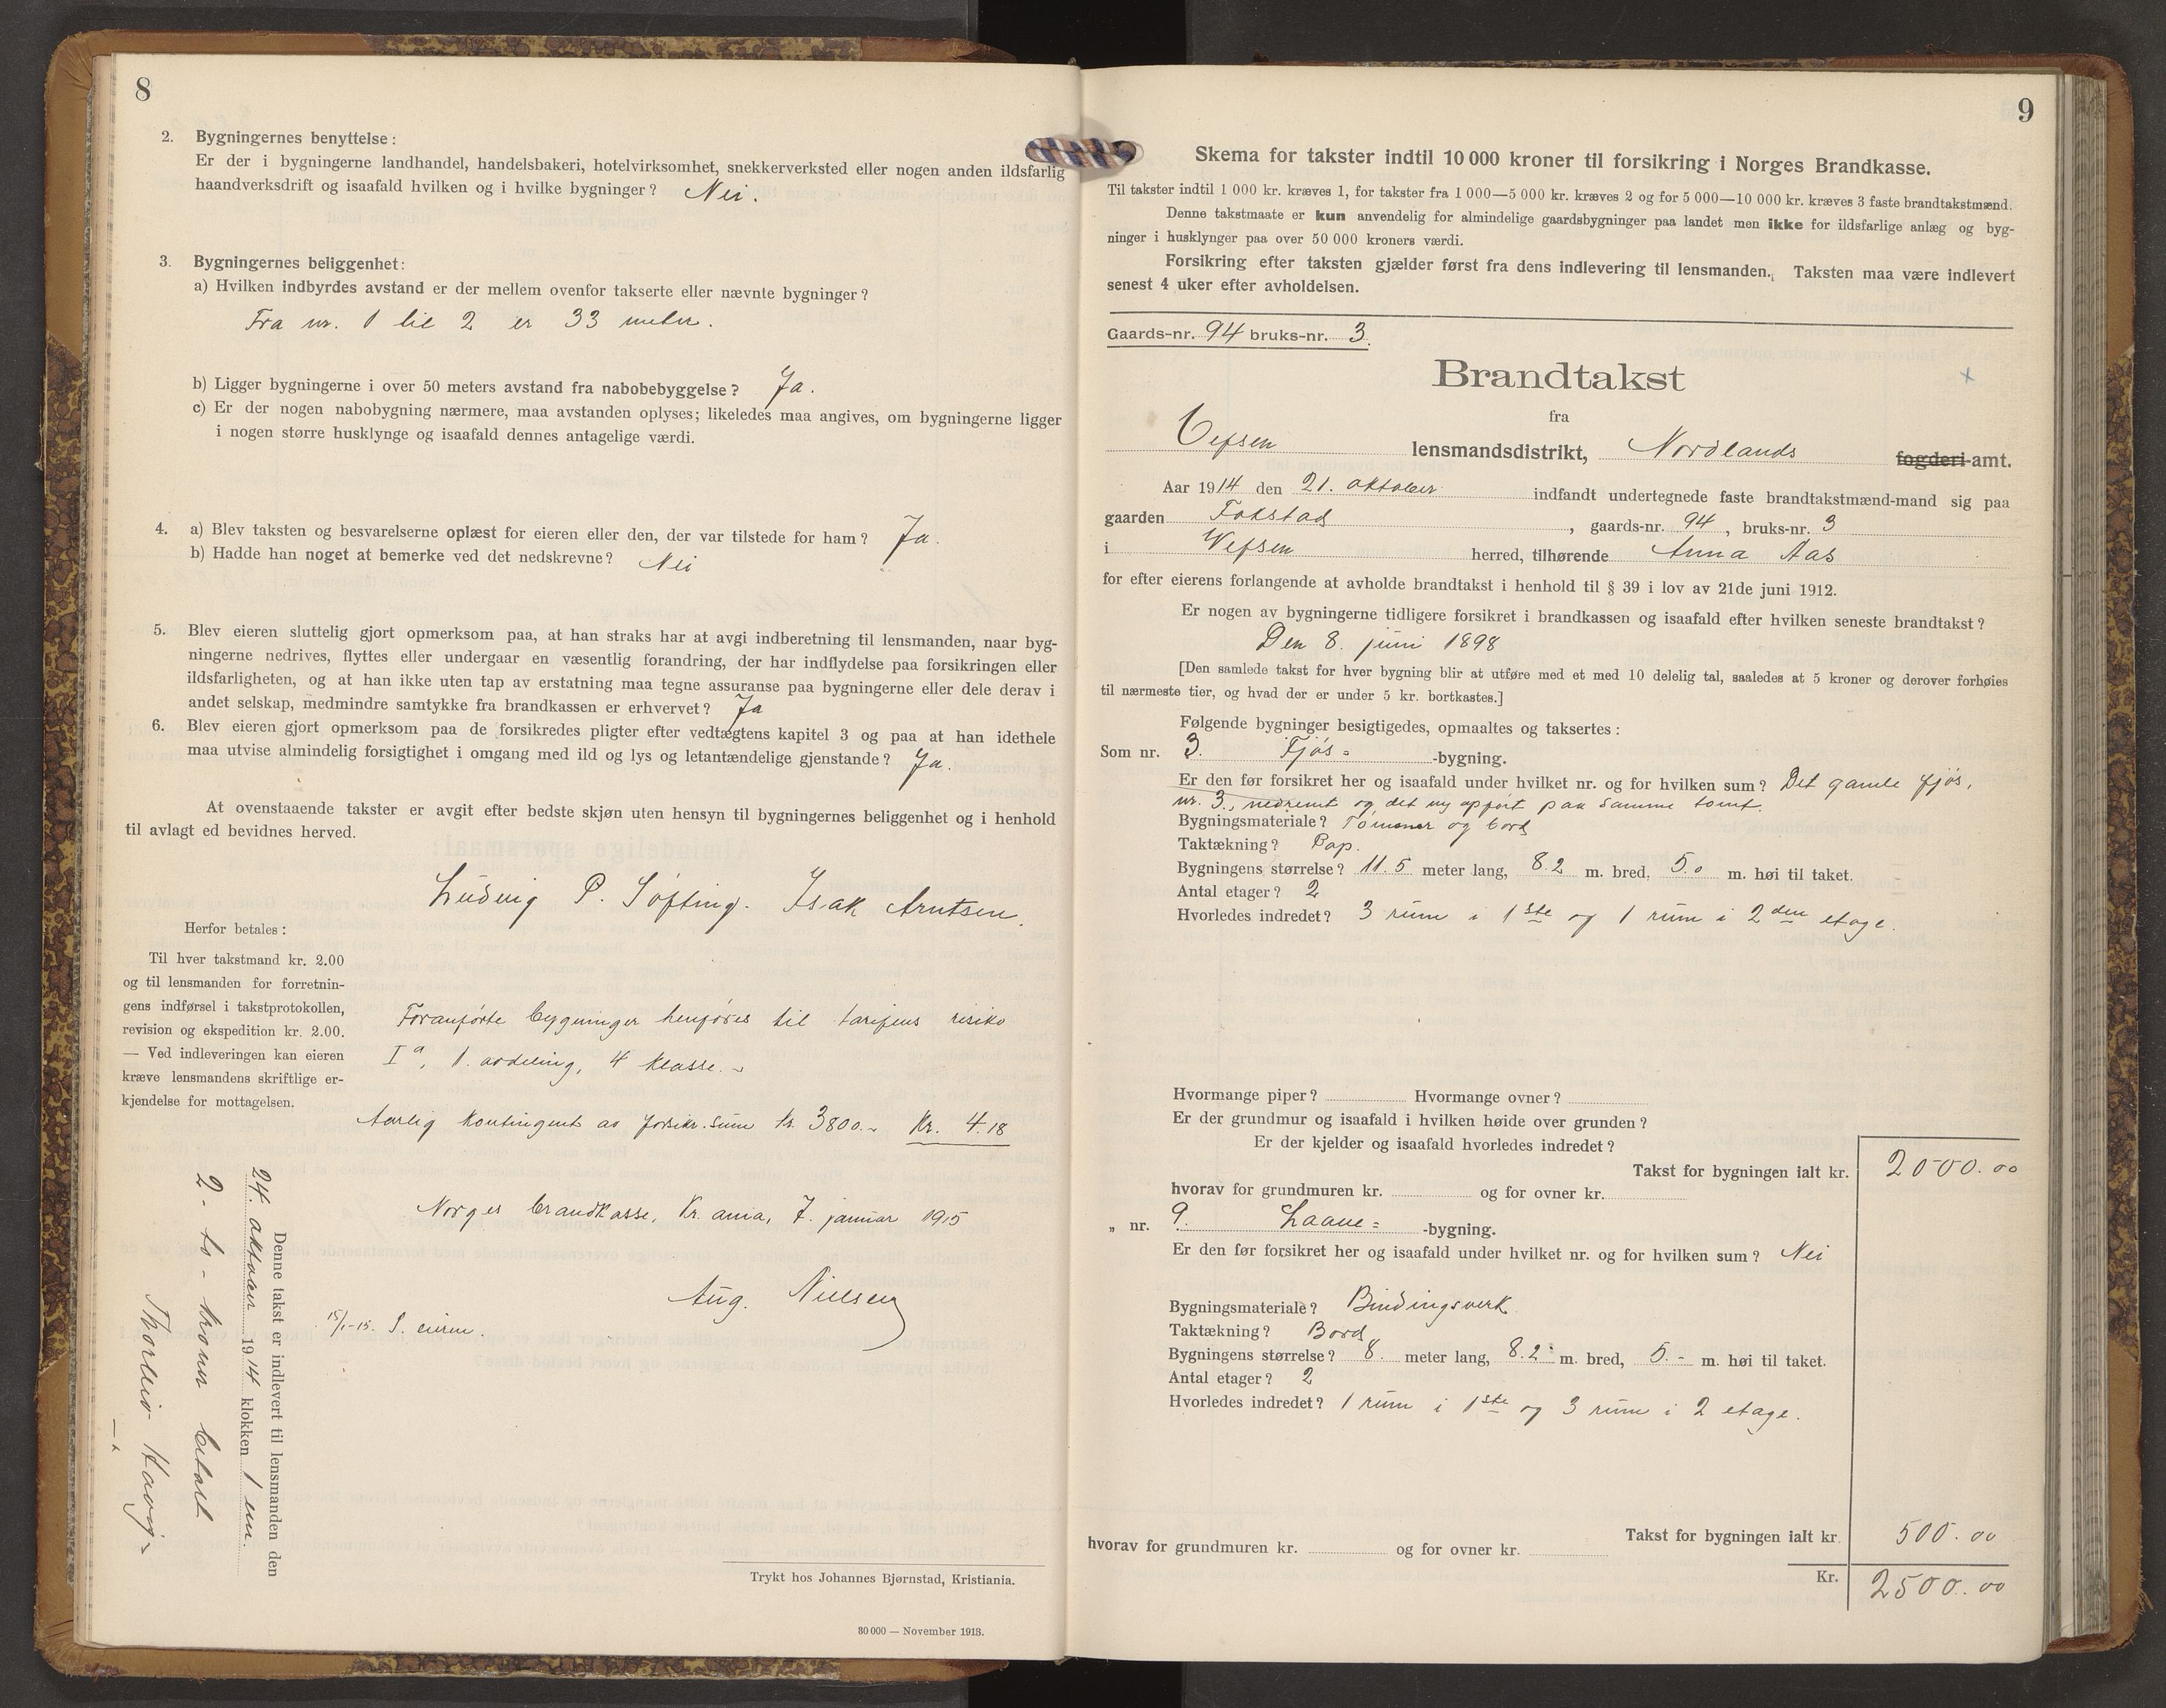 8
2. Bygningernes benyttelse:
Er der i bygningerne landhandel, handelsbakeri, hotelvirksomhet, snekkerverksted eller nogen anden ildsfarlig
haandverksdrift og isaafald hvilken og i hvilke bygninger? Nei.
3. Bygningernes beliggenhet:
a) Hvilken indbyrdes avstand er der mellem ovenfor takserte eller nævnte bygninger?
Fra nr. 1 til 2 er 33 meter.
b) Ligger bygningerne i over 50 meters avstand fra nabobebyggelse? Ja.
c) Er der nogen nabobygning nærmere, maa avstanden oplyses; likeledes maa angives, om bygningerne ligger
i nogen større husklynge og isaafald dennes antagelige værdi.
4. a) Blev taksten og besvarelserne oplæst for eieren eller den, der var tilstede for ham? Ja.
b) Hadde han noget at bemerke ved det nedskrevne? Nei
5. Blev eieren sluttelig gjort opmerksom paa, at han straks har at avgi indberetning til lensmanden, naar byg-
ningerne nedrives, flyttes eller undergaar en væsentlig forandring, der har indflydelse paa forsikringen eller
ildsfarligheten, og at han ikke uten tap av erstatning maa tegne assuranse paa bygningerne eller dele derav i
andet selskap, medmindre samtykke fra brandkassen er erhvervet? Ja
6. Blev eieren gjort opmerksom paa de forsikredes pligter efter vedtægtens kapitel 3 og paa at han idethele
maa utvise almindelig forsigtighet i omgang med ild og lys og letantændelige gjenstande? Ja.
At ovenstaaende takster er avgit efter bedste skjøn uten hensyn til bygningernes beliggenhet og i henhold
til avlagt ed bevidnes herved.
Ludvig P. Søfting. Isak Arntsen.
Herfor betales:
Til hver takstmand kr. 2.00
og til lensmanden for forretnin-
gens indførsel i takstprotokollen,
revision og ekspedition kr. 2.00.
— Ved indleveringen kan eieren
kræve lensmandens skriftlige er-
kjendelse for mottagelsen.
Foranførte bygninger henføres til tarifens risiko
I a, 1. avdeling, 4 klasse. -
Aarlig kontingent av forsikr.sum kr. 3800.- Kr. 4.18
Norges brandkasse, Kr.ania, 7. januar 1915
Aug. Nielsen
15/1-15. S. eieren.
Denne takst er indlevert til lensmanden den
24. oktober 1914 klokken 1 em.
2 - to - kroner betalt
Thorleif Havig
Trykt hos Johannes Bjørnstad, Kristiania.
30 000 — November 1913.
9
Skema for takster indtil 10 000 kroner til forsikring i Norges Brandkasse.
Til takster indtil 1 000 kr. kræves 1, for takster fra 1 000—5 000 kr. kræves 2 og for 5 000—10 000 kr. kræves 3 faste brandtakstmænd.
Denne takstmaate er kun anvendelig for almindelige gaardsbygninger paa landet men ikke for ildsfarlige anlæg og byg-
ninger i husklynger paa over 50 000 kroners værdi.
Forsikring efter taksten gjælder først fra dens indlevering til lensmanden. Taksten maa være indlevert
senest 4 uker efter avholdelsen.
Gaards-nr. 94 bruks-nr. 3.
Brandtakst
fra
Vefsen lensmandsdistrikt, Nordlands fogderi-amt.
Aar 1914 den 21. oktober indfandt undertegnede faste brandtakstmænd-mand sig paa
gaarden Fokstad, gaards-nr. 94, bruks-nr. 3
i Vefsen herred, tilhørende Anna Aas
for efter eierens forlangende at avholde brandtakst i henhold til § 39 i lov av 21de juni 1912.
Er nogen av bygningerne tidligere forsikret i brandkassen og isaafald efter hvilken seneste brandtakst?
Den 8. juni 1898
[Den samlede takst for hver bygning blir at utføre med et med 10 delelig tal, saaledes at 5 kroner og derover forhøies
til nærmeste tier, og hvad der er under 5 kr. bortkastes.]
Følgende bygninger besigtigedes, opmaaltes og taksertes:
Som nr. 3. Fjøs= -bygning.
Er den før forsikret her og isaafald under hvilket nr. og for hvilken sum? Det gamle fjøs,
nr. 3., nedrevet og det ny opført paa samme tomt.
Bygningsmateriale? Tømmer og bord
Taktækning? Pap.
Bygningens størrelse? 11.5 meter lang, 8.2 m. bred, 5.0 m. høi til taket.
Antal etager? 2
Hvorledes indredet? 3 rum i 1ste og 1 rum i 2den etage.
Hvormange piper? Hvormange ovner?
Er der grundmur og isaafald i hvilken høide over grunden?
Er der kjelder og isaafald hvorledes indredet?
Takst for bygningen ialt kr. 2000.00
hvorav for grundmuren kr. og for ovner kr.
„ nr. 9. Laave= -bygning.
Er den før forsikret her og isaafald under hvilket nr. og for hvilken sum? Nei
Bygningsmateriale? Bindingsverk
Taktækning? Bord
Bygningens størrelse? 8. meter lang, 8.2 m. bred, 5.- m. høi til taket.
Antal etager? 2
Hvorledes indredet? 1 rum i 1ste og 3 rum i 2 etage.
Takst for bygningen ialt kr. 500.00
hvorav for grundmuren kr. og for ovner kr.
Kr. 2500.00